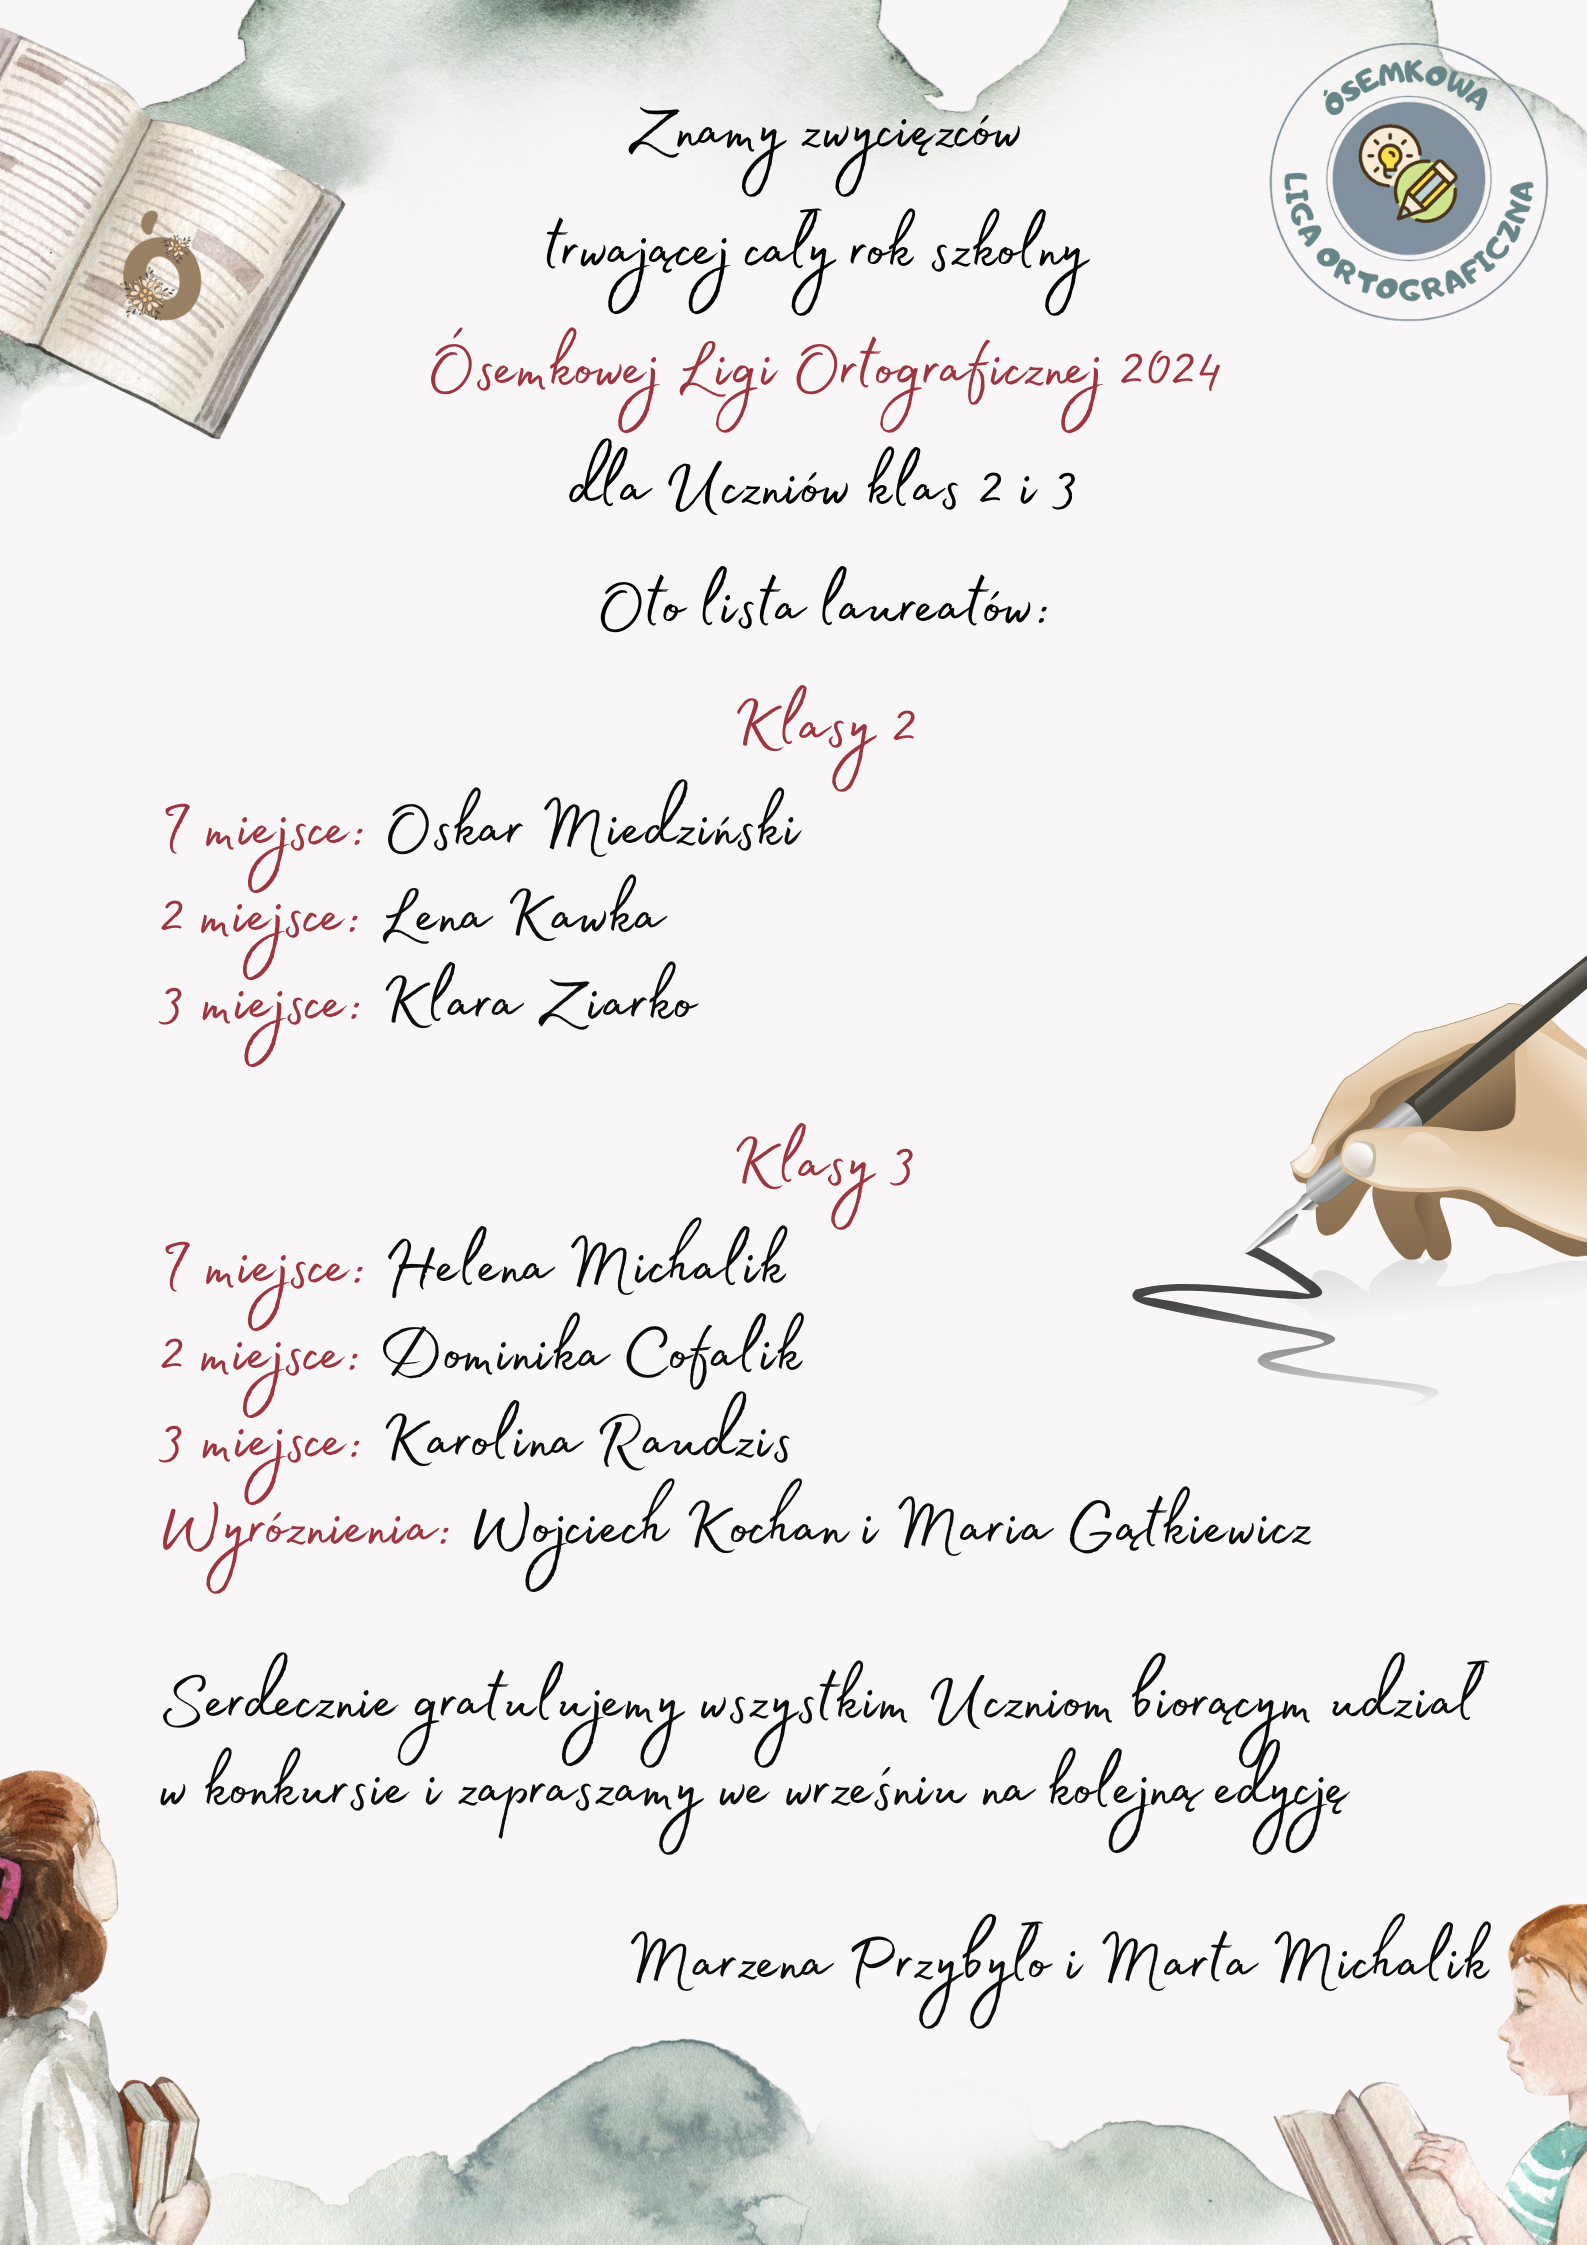 ÓSEMKOWA
LIGA ORTOGRAFICZNA
Ó
Znamy zwycięzców
trwającej cały rok szkolny
Ósemkowej Ligi Ortograficznej 2024
dla Uczniów klas 2 i 3
Oto lista laureatów:
Klasy 2
1 miejsce: Oskar Miedziński
2 miejsce: Lena Kawka
3 miejsce: Klara Ziarko
Klasy 3
1 miejsce: Helena Michalik
2 miejsce: Dominika Cofalik
3 miejsce: Karolina Raudzis
Wyróznienia: Wojciech Kochan i Maria Gątkiewicz
Serdecznie gratulujemy wszystkim Uczniom biorącym udział
w konkursie i zapraszamy we wrześniu na kolejną edycję
Marzena Przybyło i Marta Michalik